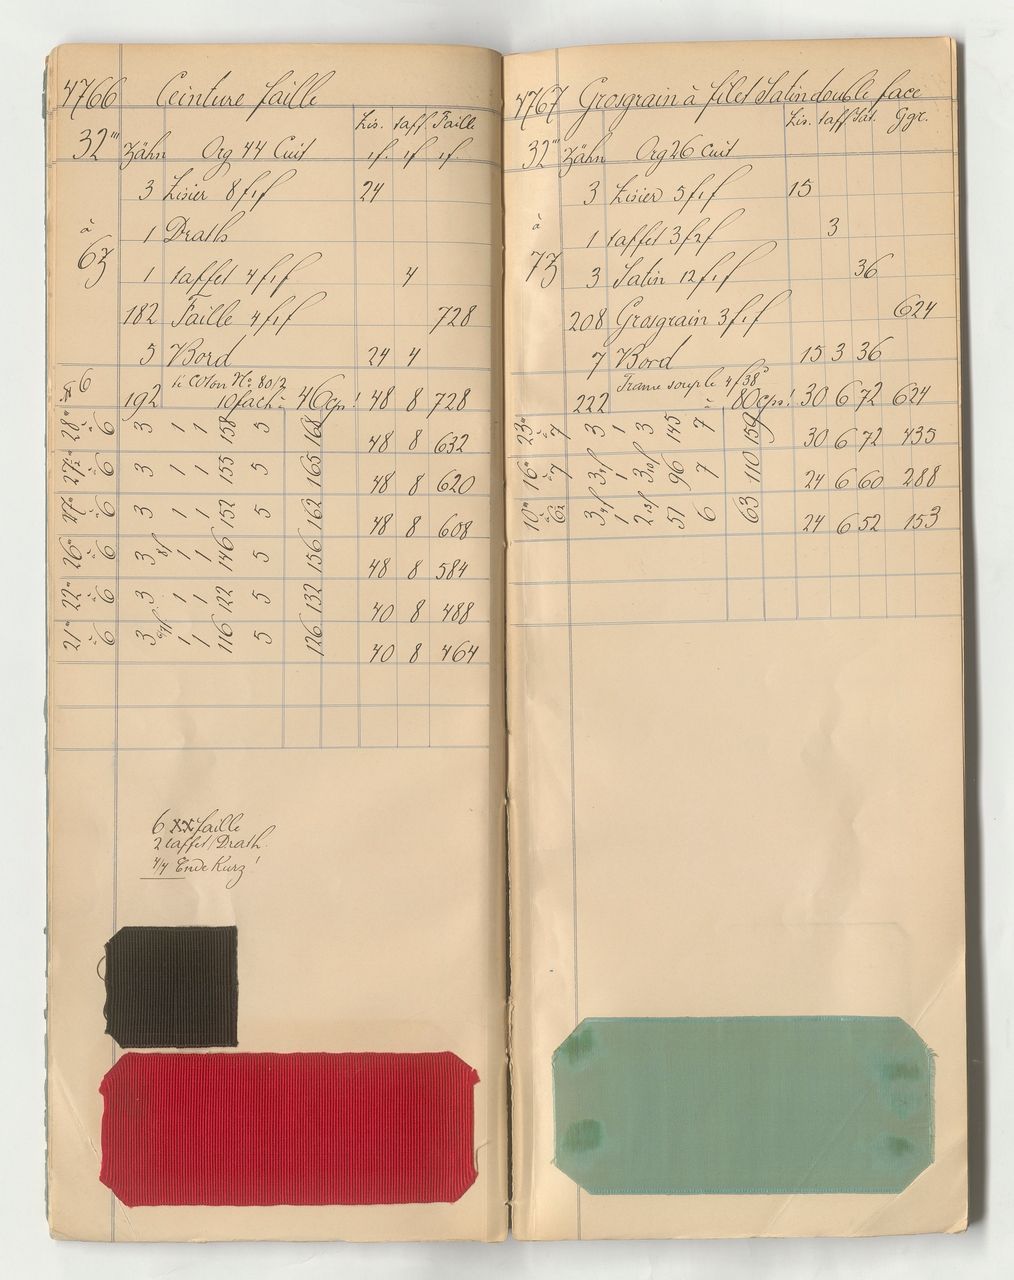 4766 Ceinture faille
Lis. taff. Faille
32''' Zähn Org 44 Cuit 1f. 1f 1f.
3 Lisier 8 f 1 f 24
à 1 Drath
63 1 taffet 4 f 1 f 4
182 Faille 4 f 1 f 728
5 Bord 24 4
6 ti Coton No. 80/2
192 10fach à 46 cps! 48 8 728
28''' à 6 3 1 1 158 5 168 48 8 632
27''' à 6 3 1 1 155 5 165 48 8 620
27''' à 6 3 1 1 152 5 162 48 8 608
26''' à 6 3 8f 1 1 146 5 156 48 8 584
22''' à 6 3 1 1 122 5 132 40 8 488
21''' à 6 3 1 1 116 5 126 40 8 464
6 xx faille
2 taffet/Drath.
4/4 Ende Kurz!
4767 Grosgrain à filet Satin double face
Lis. taff Sat. Ggr.
32''' Zähn Org 26 Cuit
3 Lisier 5 f 1 f 15
à 1 taffet 3 f 2 f 3
73 3 Satin 12 f 1 f 36
208 Grosgrain 3 f 1 f 624
7 Bord 15 3 36
Trame souple 4f 38°
222 à 80 cps! 30 6 72 624
23''' à 7 3 1 3 145 7 159 30 6 72 435
16''' à 7 3 1 3 96 7 110 24 6 60 288
10''' à 6 3 1 2 51 6 63 24 6 52 153